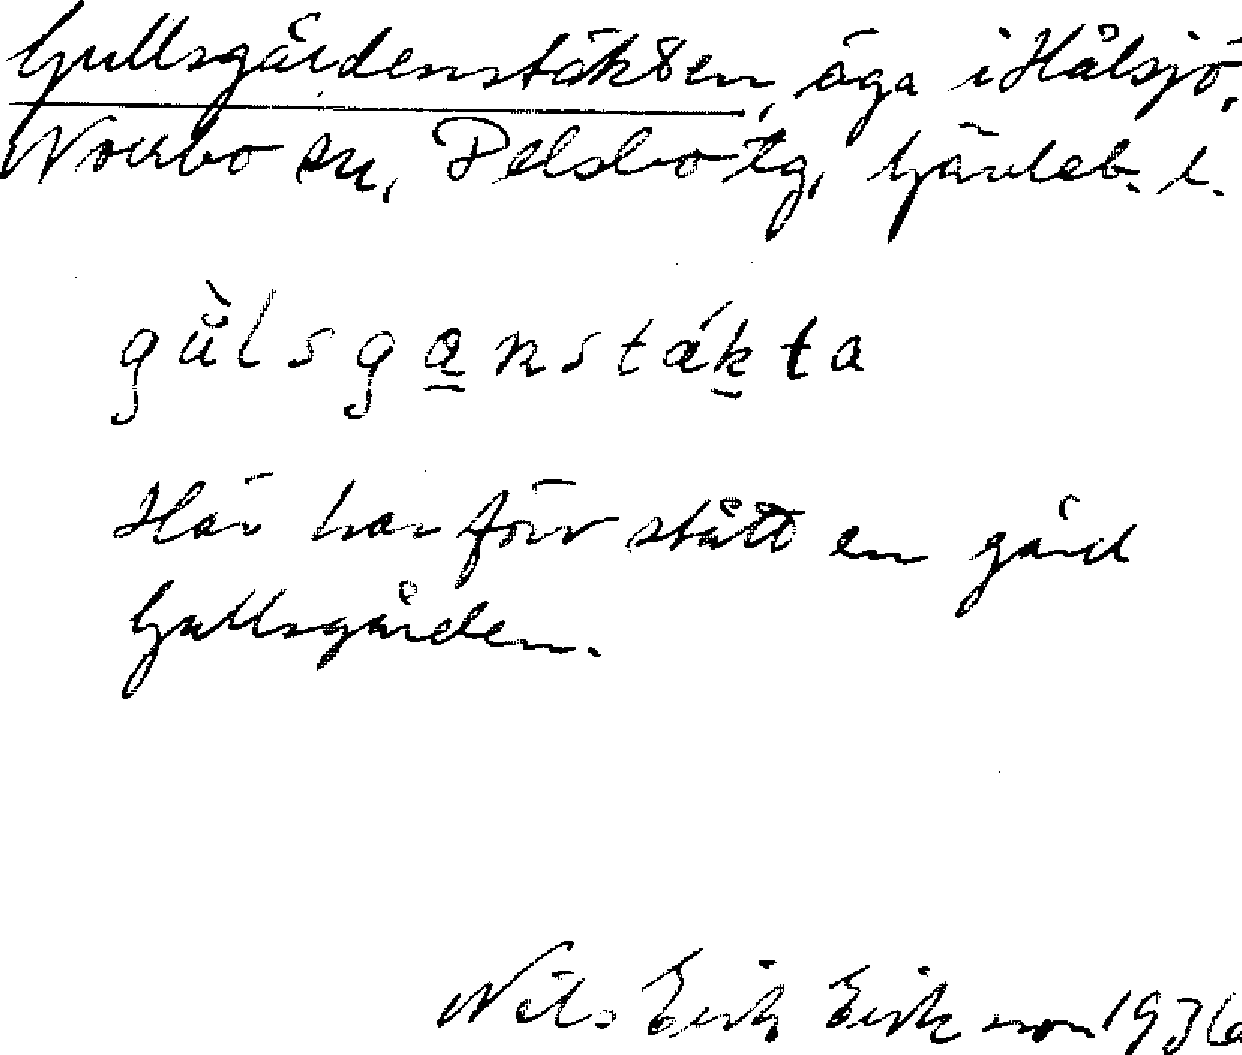 Gullsgårdenstäkten, äga i Hålsjö,
Norrbo sn, Delsbo tg, Gävleb. l.
gùlsganstákta
Här har förr stått en gård
Gullsgården.
Nils Erik Eriksson 1936